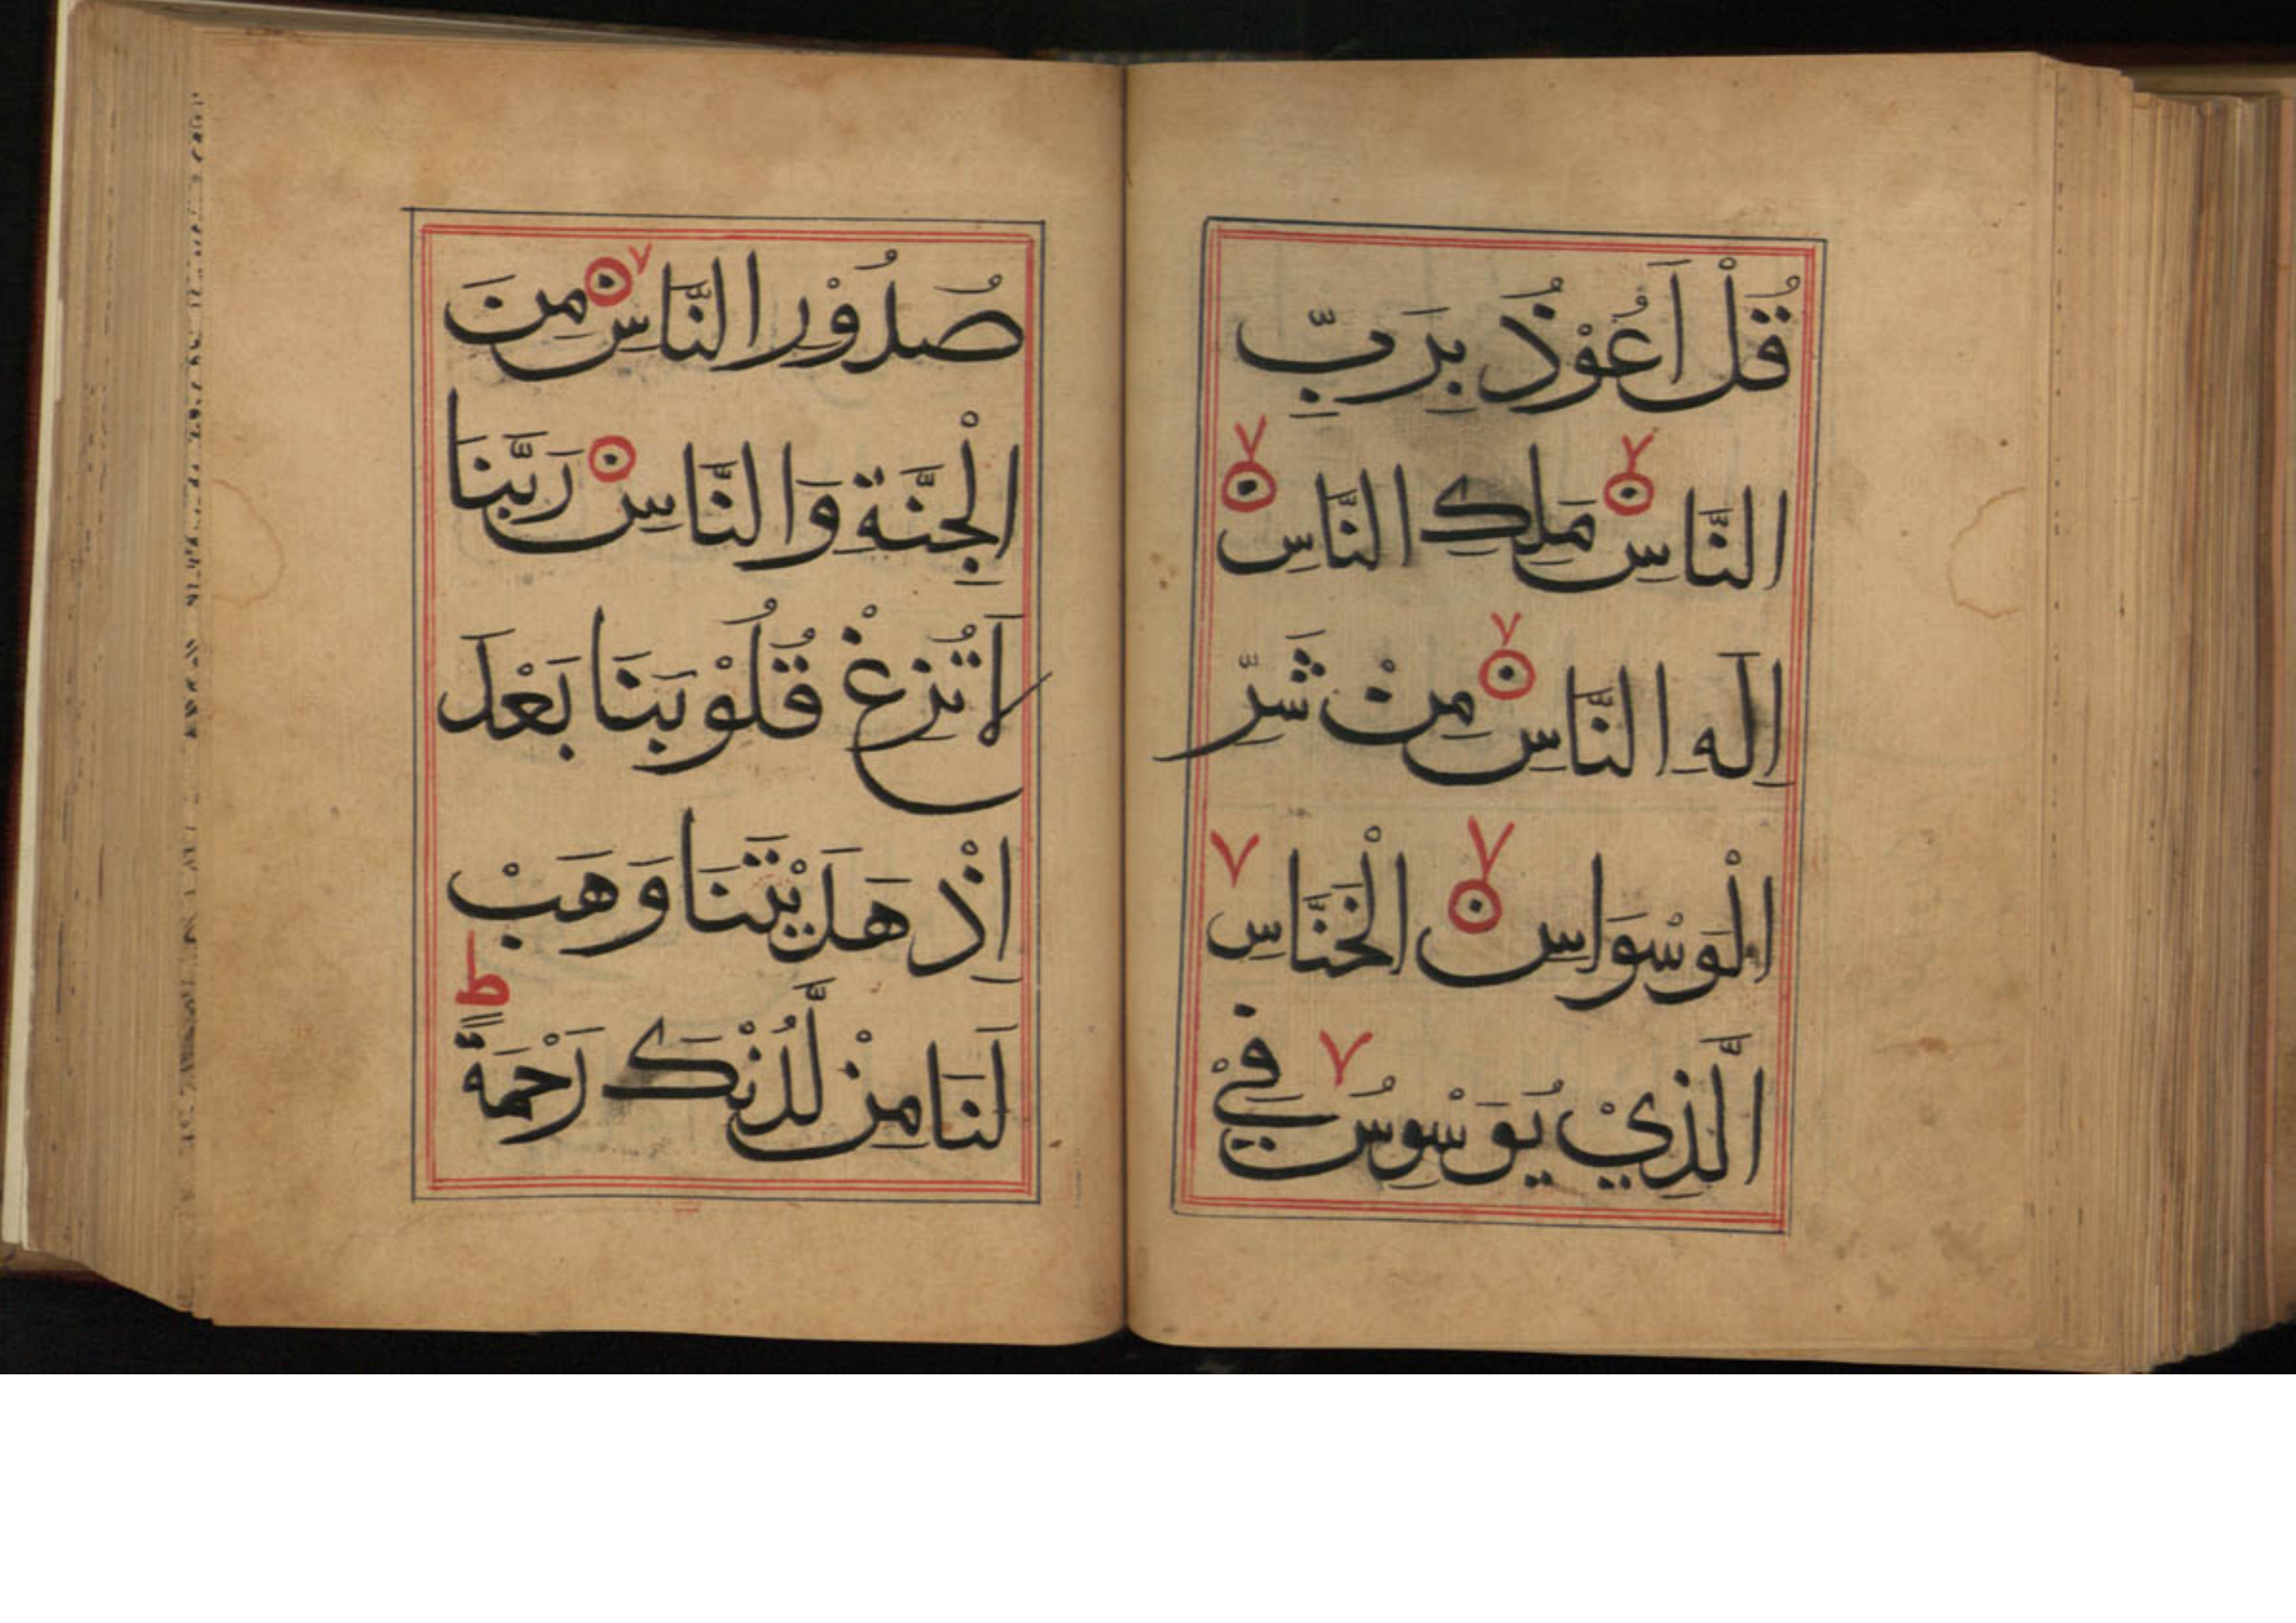 قُلْ اَعُوْذُ بِرَبِّ
النَّاسِ مَلِكِ النَّاسِ
اِلَهِ النَّاسِ مِنْ شَرِّ
الْوَسْوَاسِ الْخَنَّاسِ
الَّذِيْ يُوَسْوِسُ فِيْ
صُدُوْرِ النَّاسِ مِنَ
الْجِنَّةِ وَالنَّاسِ رَبَّنَا
لَا تُزِغْ قُلُوْبَنَا بَعْدَ
اِذْ هَدَيْتَنَا وَهَبْ
ط
لَنَا مِنْ لَّدُنْكَ رَحْمَةً